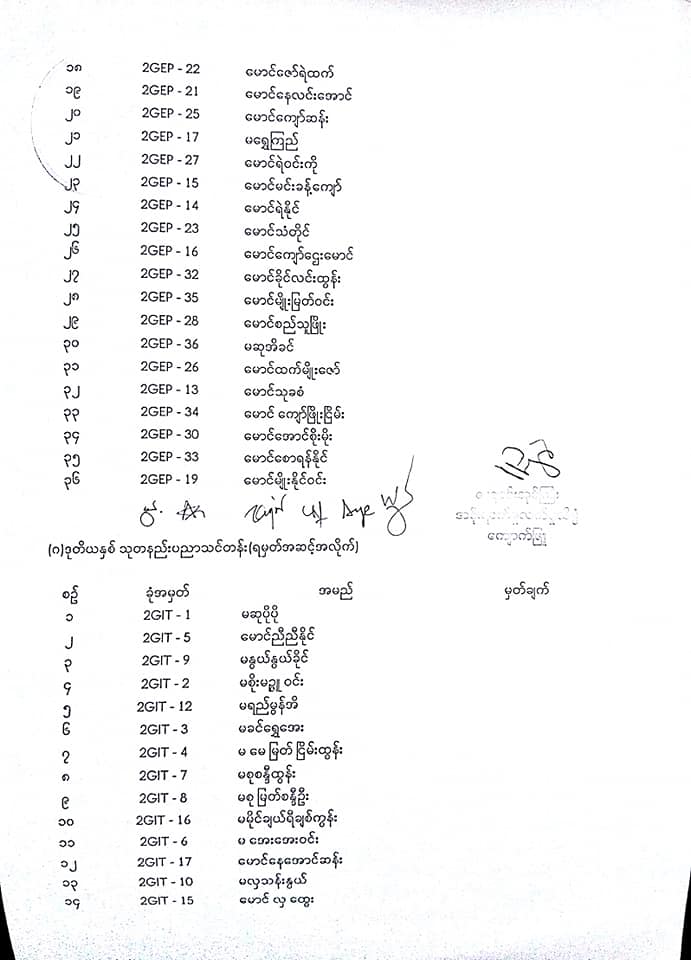 ၁၈ 2GEP - 22 မောင်ဇော်ရဲထက်
၁၉ 2GEP - 21 မောင်နေလင်းအောင်
၂၀ 2GEP - 25 မောင်ကျော်ဆန်း
၂၁ 2GEP - 17 မရွှေကြည်
၂၂ 2GEP - 27 မောင်ရဲဝင်းကို
၂၃ 2GEP - 15 မောင်မင်းခန့်ကျော်
၂၄ 2GEP - 14 မောင်ရဲနိုင်
၂၅ 2GEP - 23 မောင်သံတိုင်
၂၆ 2GEP - 16 မောင်ကျော်ဌေးမောင်
၂၇ 2GEP - 32 မောင်ခိုင်လင်းထွန်း
၂၈ 2GEP - 35 မောင်မျိုးမြတ်ဝင်း
၂၉ 2GEP - 28 မောင်စည်သူဖြိုး
၃၀ 2GEP - 36 မဆုအိခင်
၃၁ 2GEP - 26 မောင်ထက်မျိုးဇော်
၃၂ 2GEP - 13 မောင်သုခစံ
၃၃ 2GEP - 34 မောင် ကျော်ဖြိုးငြိမ်း
၃၄ 2GEP - 30 မောင်အောင်စိုးမိုး
၃၅ 2GEP - 33 မောင်စောရန်နိုင်
၃၆ 2GEP - 19 မောင်မျိုးနိုင်ဝင်း
ကျောက်ဖြူ
(ဂ)ဒုတိယနှစ် သုတနည်းပညာသင်တန်း(ရမှတ်အဆင့်အလိုက်)
စဉ် ခုံအမှတ် အမည် မှတ်ချက်
၁ 2GIT - 1 မဆုပိုပို
၂ 2GIT - 5 မောင်ညီညီနိုင်
၃ 2GIT - 9 မနွယ်နွယ်ခိုင်
၄ 2GIT - 2 မစိုးမဥ္ဇူ ဝင်း
၅ 2GIT - 12 မရည်မွန်အိ
၆ 2GIT - 3 မခင်ရွှေအေး
၇ 2GIT - 4 မ မေ မြတ် ငြိမ်းထွန်း
၈ 2GIT - 7 မစုစန္ဒီထွန်း
၉ 2GIT - 8 မစု မြတ်စန္ဒီဦး
၁၀ 2GIT - 16 မမိုင်ချယ်ရီချစ်ကွန်း
၁၁ 2GIT - 6 မ အေးအေးဝင်း
၁၂ 2GIT - 17 မောင်နေအောင်ဆန်း
၁၃ 2GIT - 10 မလှသန်းနွယ်
၁၄ 2GIT - 15 မောင် လှ ထွေး